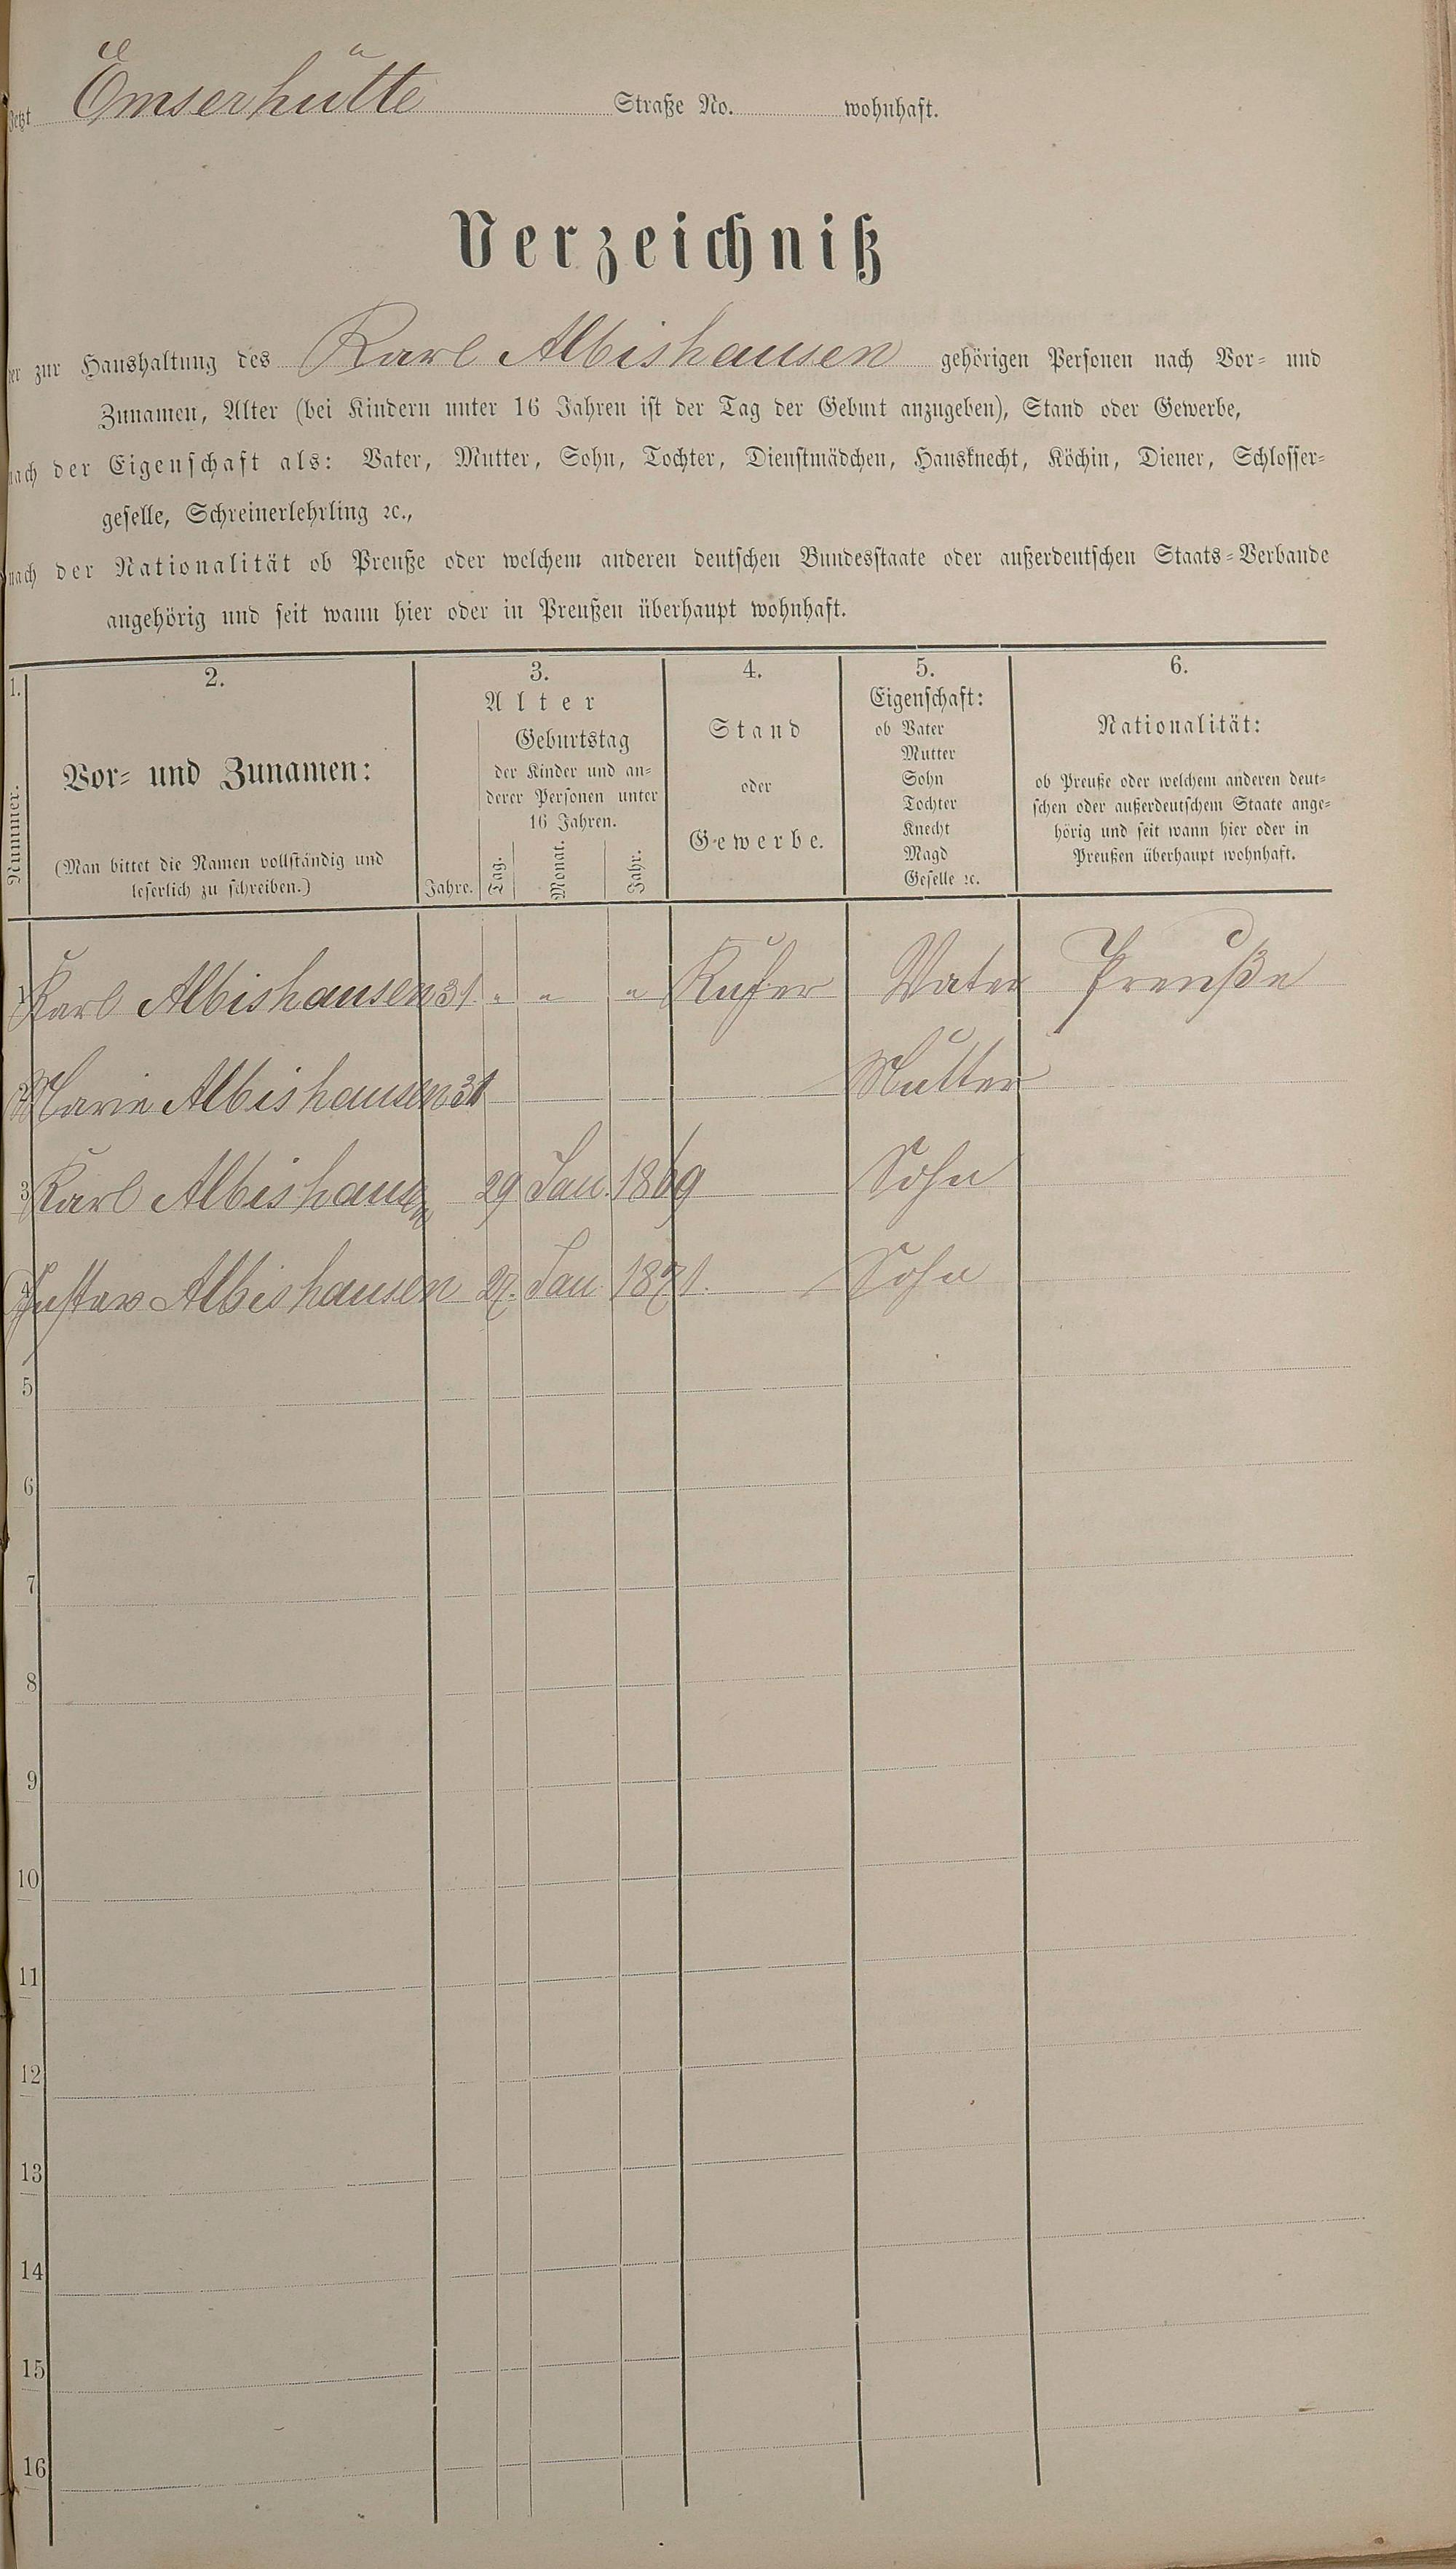 Jetzt Emserhütte Straße No. wohnhaft.
Verzeichniß
der zur Haushaltung des Karl Albishausen gehörigen Personen nach Vor- und
Zunamen, Alter (bei Kindern unter 16 Jahren ist der Tag der Geburt anzugeben), Stand oder Gewerbe,
nach der Eigenschaft als: Vater, Mutter, Sohn, Tochter, Dienstmädchen, Hausknecht, Köchin, Diener, Schlosser-
geselle, Schreinerlehrling ꝛc.,
nach der Nationalität ob Preuße oder welchem anderen deutschen Bundesstaate oder außerdeutschen Staats-Verbande
angehörig und seit wann hier oder in Preußen überhaupt wohnhaft.
1.
Nummer.
2.
Vor- und Zunamen:
(Man bittet die Namen vollständig und
leserlich zu schreiben.)
3.
Alter
Jahre.
Geburtstag
der Kinder und an-
derer Personen unter
16 Jahren.
Tag. Monat. Jahr.
4.
Stand
oder
Gewerbe.
5.
Eigenschaft:
ob Vater
Mutter
Sohn
Tochter
Knecht
Magd
Geselle ꝛc.
6.
Nationalität:
ob Preuße oder welchem anderen deut-
schen oder außerdeutschem Staate ange-
hörig und seit wann hier oder in
Preußen überhaupt wohnhaft.
1 Karl Albishausen 31. " " " Küfer Vater Preuße
2 Marie Albishausen 31 Mutter
3 Karl Albishausen 29 Jan. 1869 Sohn
4 Gustav Albishausen 27. Jan. 1871. Sohn
5
6
7
8
9
10
11
12
13
14
15
16